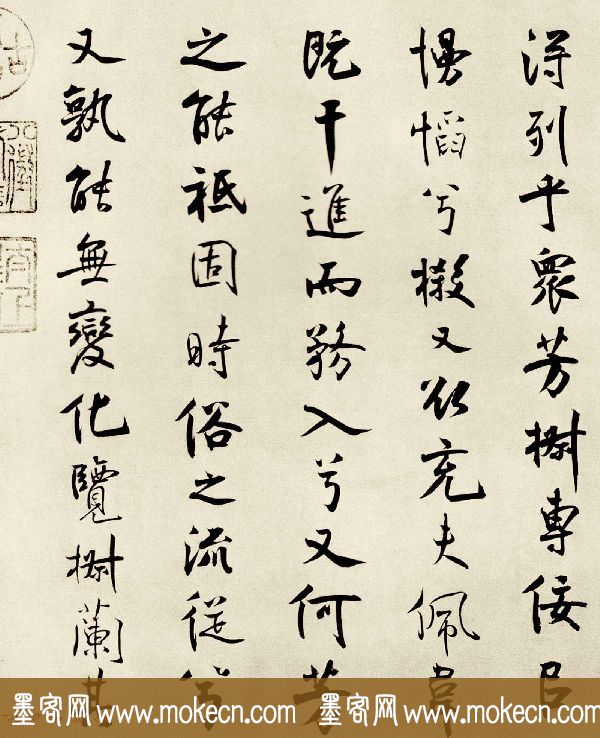 得列乎衆芳椒專佞
慢慆兮樧又欲充夫佩
既干進而務入兮又何芳
之能祗固時俗之流從
又孰能無變化覽椒蘭其
墨客网 www.mokecn.com 墨客网 www.mokecn.com